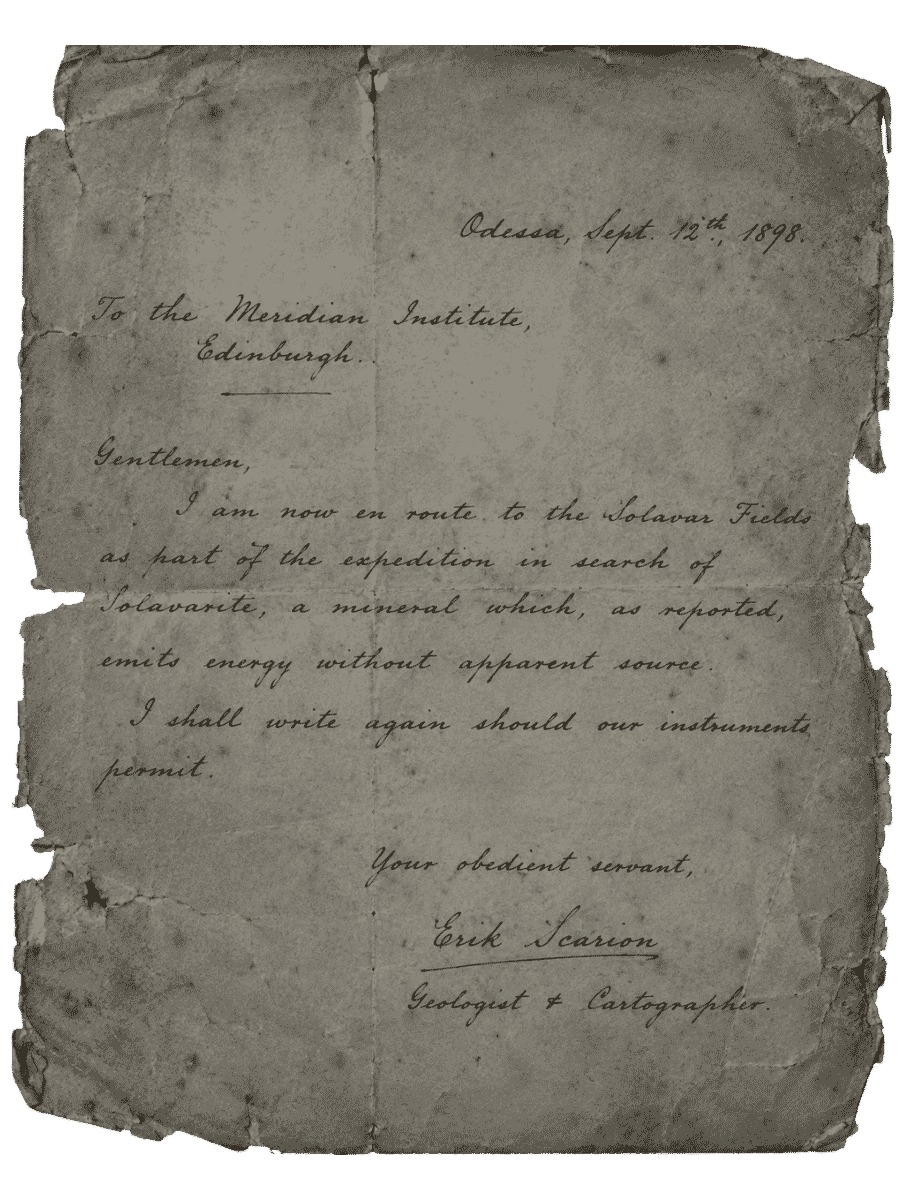 Odessa, Sept. 12th., 1898.
To the Meridian Institute,
Edinburgh.
Gentlemen,
I am now en route to the Solavar Fields
as part of the expedition in search of
Solavarite, a mineral which, as reported,
emits energy without apparent source.
I shall write again should our instruments
permit.
Your obedient servant,
Erik Scarion
Geologist & Cartographer.